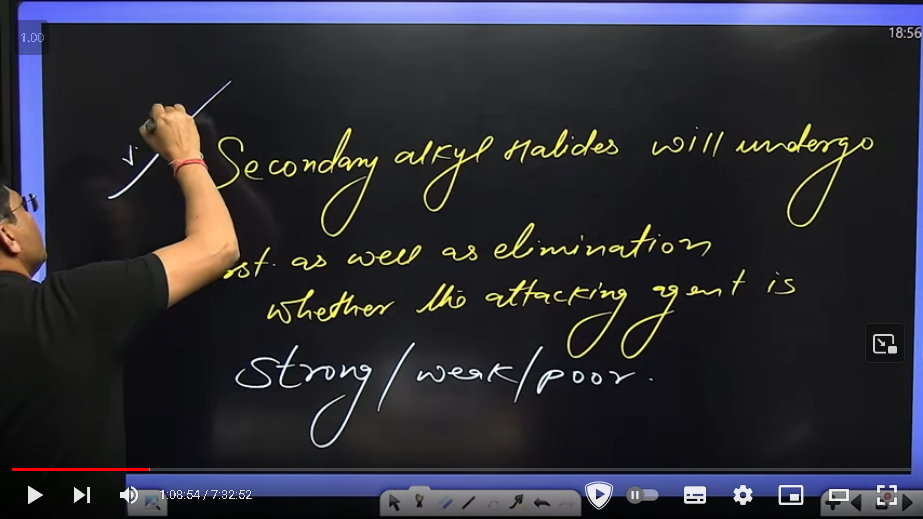 1.00
18:56
Secondary alkyl Halides will undergo
as well as elimination
whether the attacking agent is
strong/weak/poor.
1:08:54 / 7:32:52